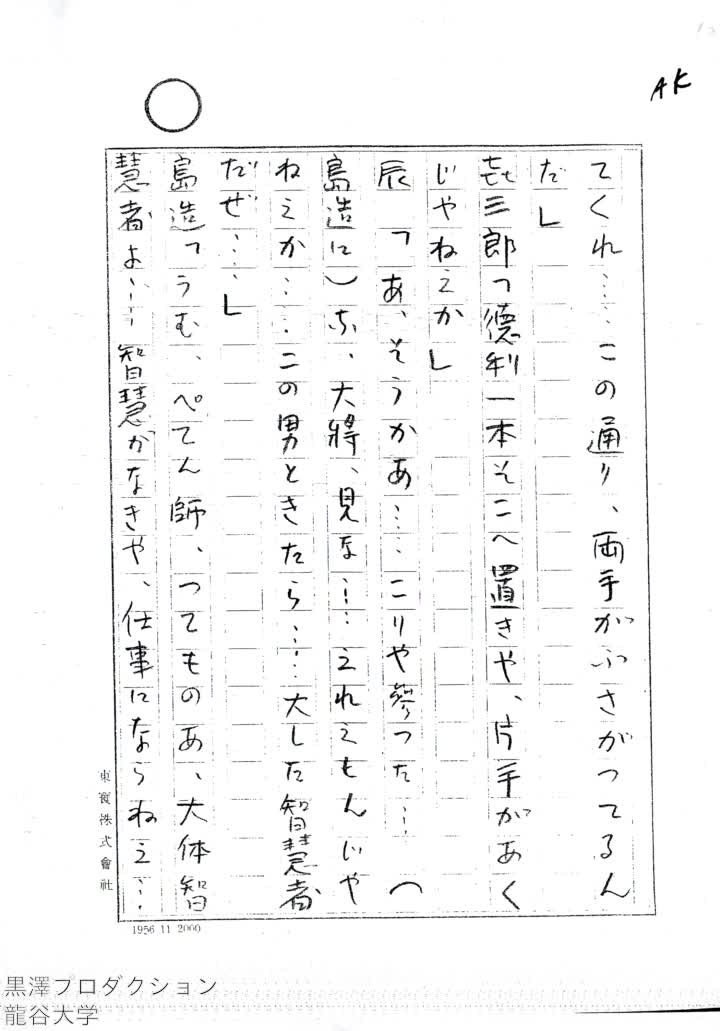 AK
てくれ……この通り、両手がふさがつてるん
だ」
㐂三郎「徳利一本そこへ置きや、片手があく
じやねえか」
辰　「あ、そうかあ……こりや参つた…（
島造に）な、大將、見な……えれえもんじや
ねえか……この男ときたら……大した智慧者
だぜ……」
島造「うむ、ぺてん師、つてものあ、大体智
慧者よ……智慧がなきや、仕事にならねえ…
東寳株式會社
1956 11 2000
黒澤プロダクション
龍谷大学